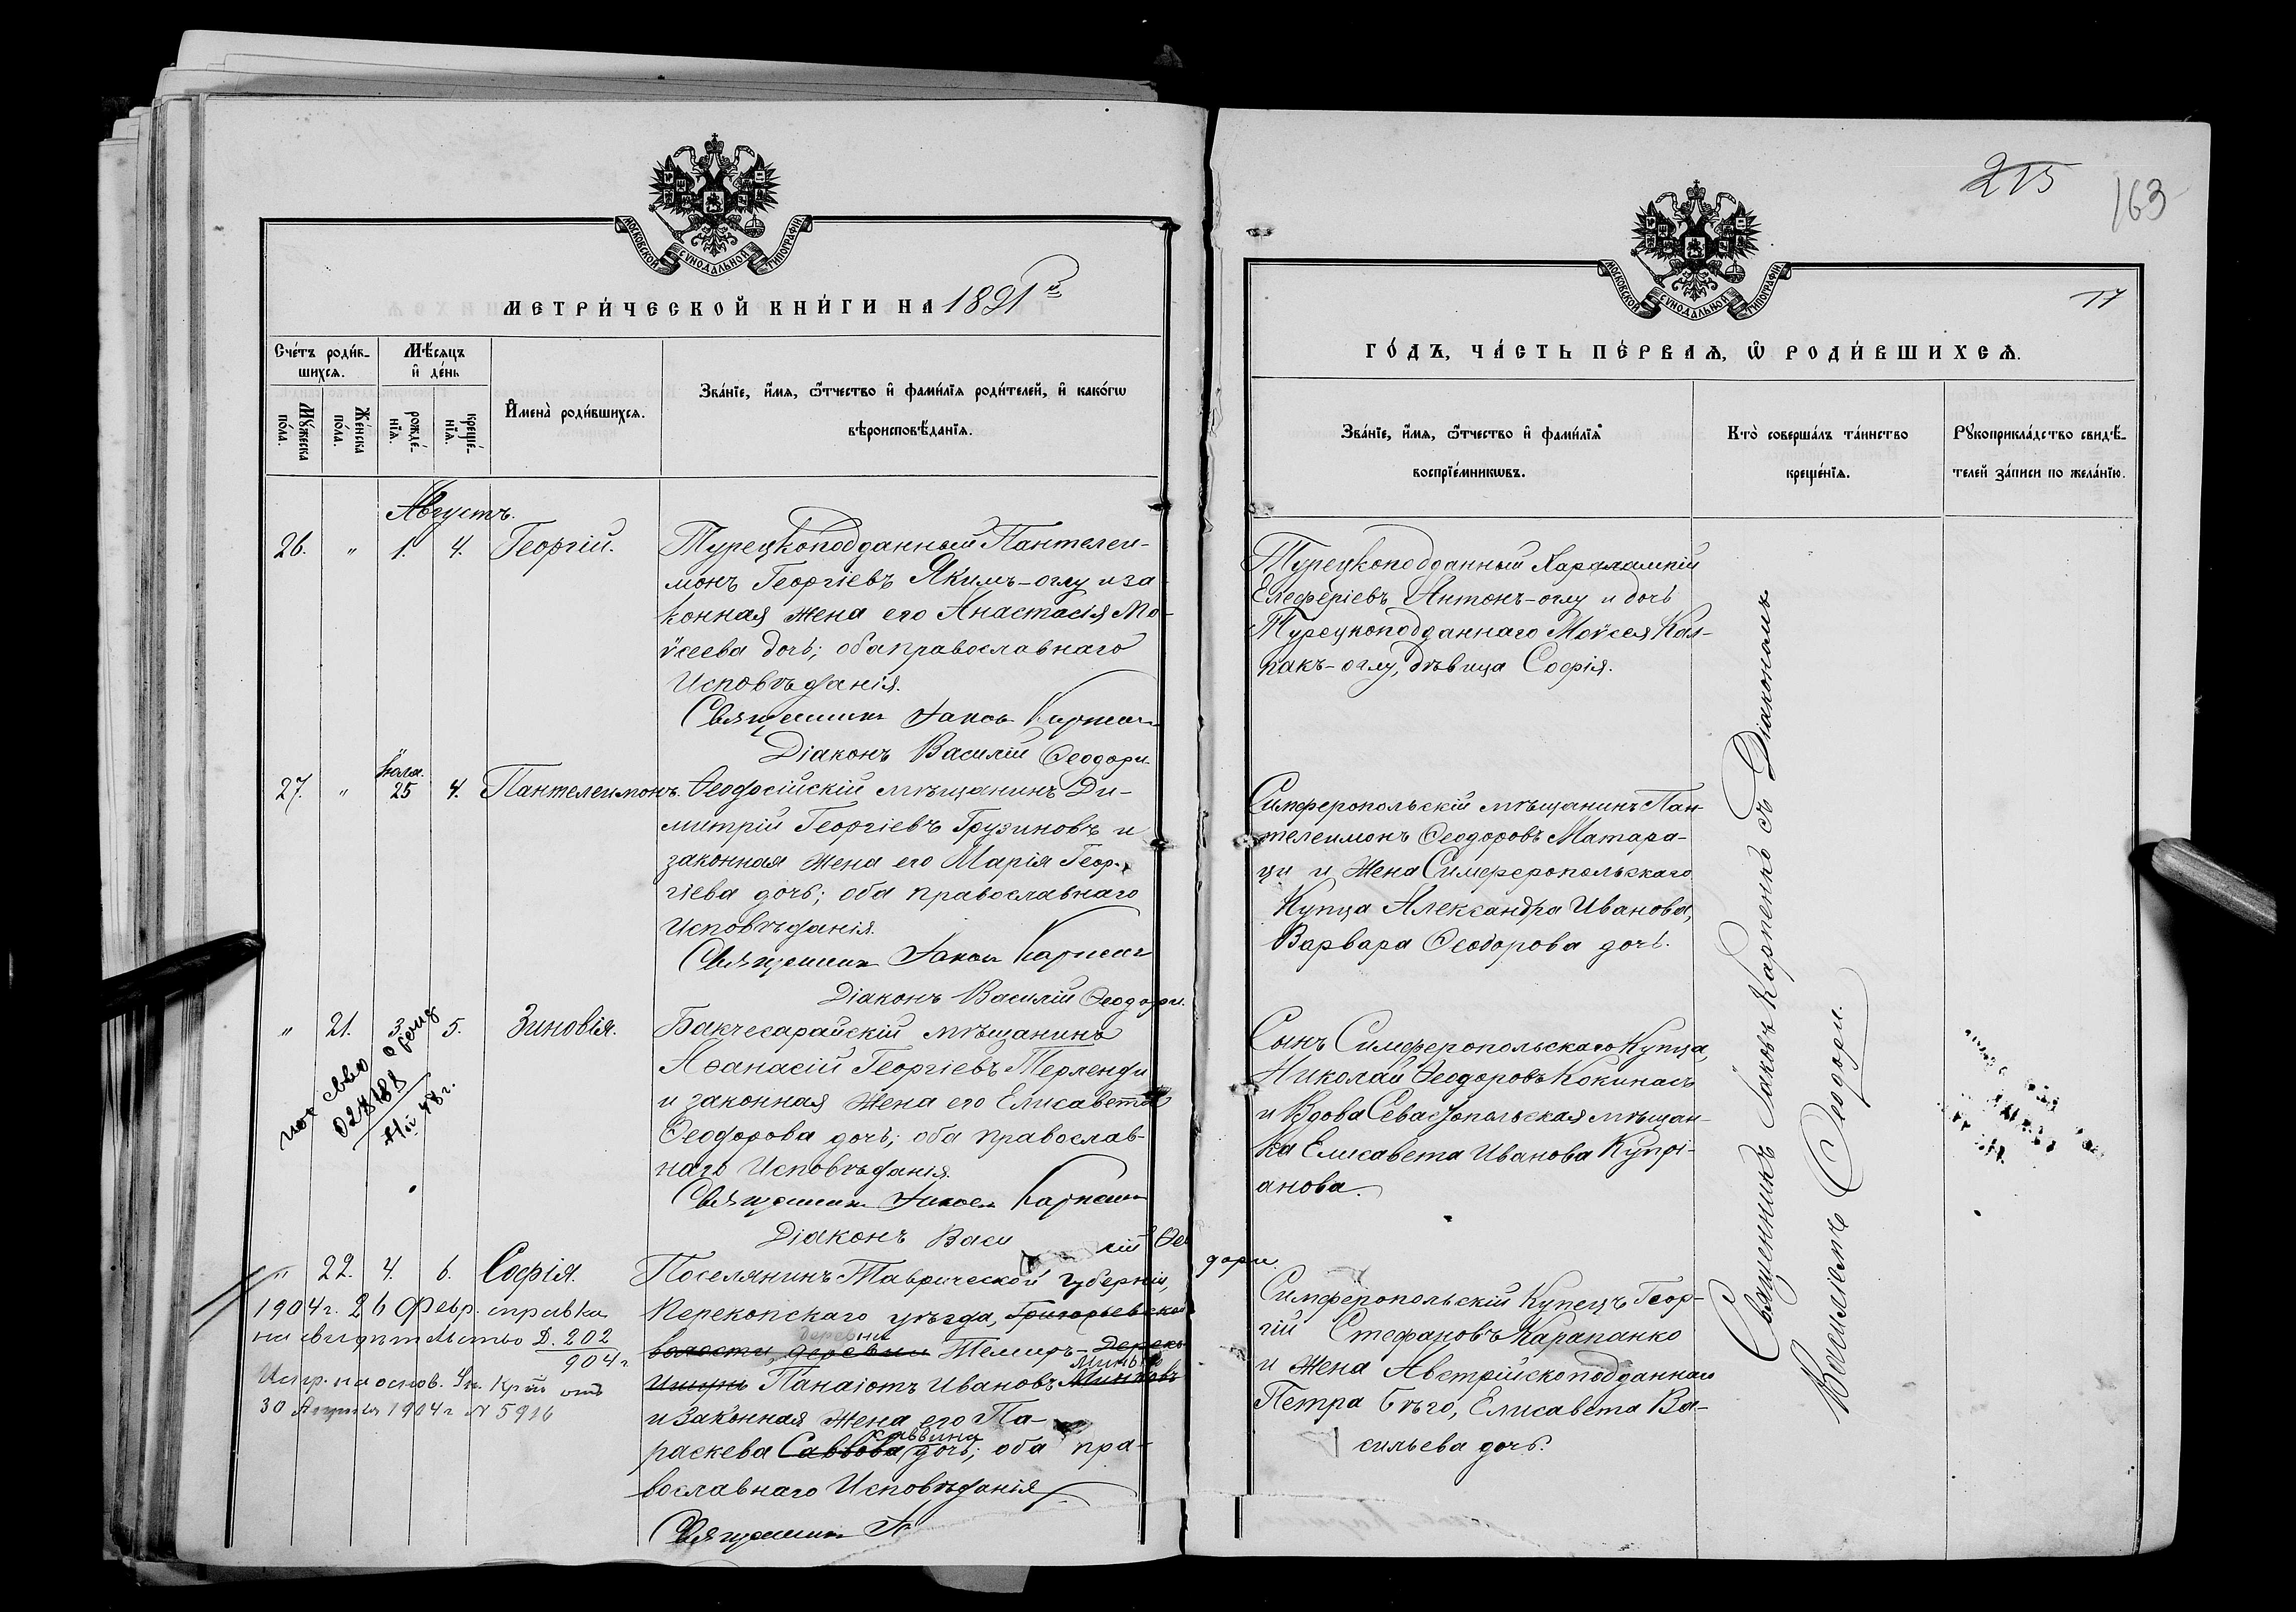 МОСКОВСКОЙ СѴНОДАЛЬНОЙ ТИПОГРАФІИ.
МЕТРИ́ЧЕСКОЙ КНИ́ГИ НА 1891 й
Сче́тъ роди́в-
шихсѧ.
Мꙋ́жеска
по́ла.
Же́нска
по́ла.
Мѣ́сѧцъ
и҆ де́нь
рожде́-
нїѧ.
креще́-
нїѧ.
И҆мена̀ роди́вшихсѧ.
Зва́нїе, и҆́мѧ, ѻ҆́тчество и҆ фами́лїѧ роди́телей, и҆ како́гѡ
вѣроисповѣ́данїѧ.
Августъ.
26. " 1. 4. Георгій.
Турецкоподданный Пантелеи-
монъ Георгіевъ Якимъ-оглу и за-
конная жена его Анастасія Мо-
ѵсеева дочь; оба православнаго
Исповѣданія.
Священникъ Іаковъ Карпенко
Діаконъ Василій Ѳеодори.
Іюля.
27. " 25 4. Пантелеимонъ.
Ѳеодосійскій мѣщанинъ Ди-
митрій Георгіевъ Грузиновъ и
законная жена его Марія Геор-
гіева дочь; оба православнаго
Исповѣданія.
Священникъ Іаковъ Карпенко
Діаконъ Василій Ѳеодори.
" 21. 3. 5. Зиновія.
Бакчесарайскій мѣщанинъ
Аѳанасій Георгіевъ Терленди
и законная жена его Елисавета
Ѳеодорова дочь; оба православ-
наго Исповѣданія.
Священникъ Іаковъ Карпенко
Діаконъ Василій Ѳеодори.
" 22. 4. 6. Софія.
Поселянинъ Таврической губерніи,
Перекопскаго уѣзда, Григорьевской
деревни
волости, деревни Темиръ-
Панаіотъ Ивановъ Минковъ
и законная жена его Па-
Саввина
раскева Саввова дочь; оба пра-
вославнаго Исповѣданія.
Священникъ
1904 г. 26 Февр. справка
на свидѣтельство Д. 202
904 г.
30 Августа 1904 г. N 5916
215
163
17
МОСКОВСКОЙ СѴНОДАЛЬНОЙ ТИПОГРАФІИ.
ГО́ДЪ, ЧА́СТЬ ПЕ́РВАѦ, Ѡ҆ РОДИ́ВШИХСѦ.
Зва́нїе, и҆́мѧ, ѻ҆́тчество и҆ фами́лїѧ
воспрїе́мникѡвъ.
Кто̀ соверша́лъ та́инство
креще́нїѧ.
Рꙋкоприкла́дство свидѣ́-
телей за́писи по жела́нїю.
Турецкоподданный Харалампій
Елеферіевъ Антонъ-оглу и дочь
Турецкоподданнаго Моѵсея Кал-
пакъ-оглу, дѣвица Софія.
Симферопольскій мѣщанинъ Пан-
телеимонъ Ѳеодоровъ Матара-
ци и жена Симферопольскаго
Купца Александра Иванова,
Варвара Ѳеодорова дочь.
Сынъ Симферопольскаго Купца,
Николай Ѳеодоровъ Кокинасъ
и Вдова Севастопольская мѣщан-
ка Елисавета Иванова Купрі-
анова.
Симферопольскій Купецъ Геор-
гій Стефановъ Карапанко
и жена Австрійскоподданнаго
Петра Бѣго, Елисавета Ва-
сильева дочь.
Священникъ Іаковъ Карпенко съ Діакономъ
Василіемъ Ѳеодори.